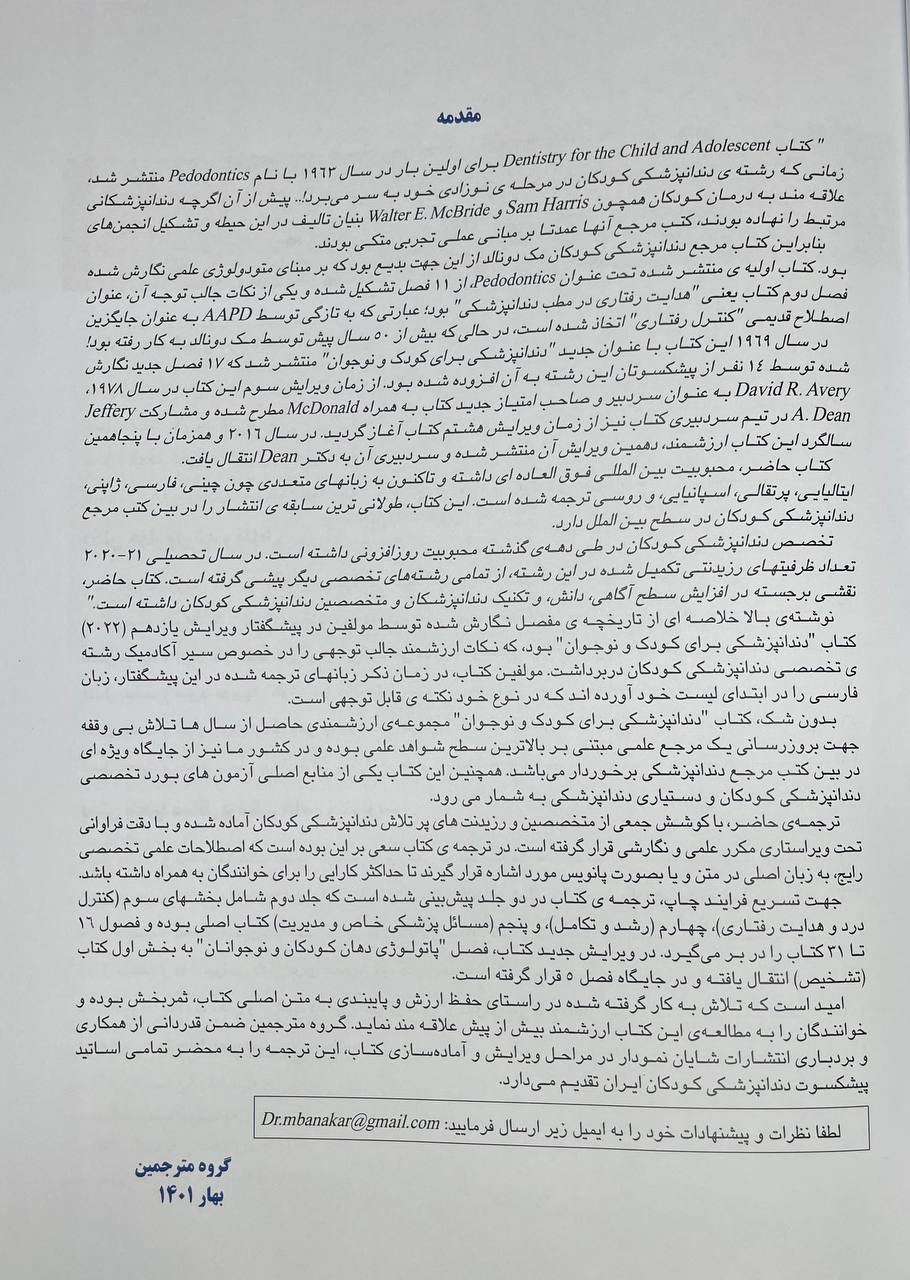 مقدمه
" کتاب Dentistry for the Child and Adolescent برای اولین بار در سال ۱۹۶۳ با نام Pedodontics منتشر شد،
زمانی که رشته ی دندانپزشکی کودکان در مرحله ی نوزادی خود به سر می‌برد!.. پیش از آن اگرچه دندانپزشکانی
علاقه مند به درمان کودکان همچون Sam Harris و Walter E. McBride بنیان تالیف در این حیطه و تشکیل انجمن‌های
مرتبط را نهاده بودند، کتب مرجع آنها عمدتا بر مبانی عملی تجربی متکی بودند.
بنابراین کتاب مرجع دندانپزشکی کودکان مک دونالد از این جهت بدیع بود که بر مبنای متودولوژی علمی نگارش شده
بود. کتاب اولیه ی منتشر شده تحت عنوان Pedodontics، از ۱۱ فصل تشکیل شده و یکی از نکات جالب توجه آن، عنوان
فصل دوم کتاب یعنی "هدایت رفتاری در مطب دندانپزشکی" بود؛ عبارتی که به تازگی توسط AAPD به عنوان جایگزین
اصطلاح قدیمی "کنترل رفتاری" اتخاذ شده است، در حالی که بیش از ۵۰ سال پیش توسط مک دونالد به کار رفته بود!
در سال ۱۹۶۹ این کتاب با عنوان جدید "دندانپزشکی برای کودک و نوجوان" منتشر شد که ۱۷ فصل جدید نگارش
شده توسط ۱۴ نفر از پیشکسوتان این رشته به آن افزوده شده بود. از زمان ویرایش سوم این کتاب در سال ۱۹۷۸،
David R. Avery به عنوان سردبیر و صاحب امتیاز جدید کتاب به همراه McDonald مطرح شده و مشارکت Jeffery
A. Dean در تیم سردبیری کتاب نیز از زمان ویرایش هشتم کتاب آغاز گردید. در سال ۲۰۱۶ و همزمان با پنجاهمین
سالگرد این کتاب ارزشمند، دهمین ویرایش آن منتشر شده و سردبیری آن به دکتر Dean انتقال یافت.
کتاب حاضر، محبوبیت بین المللی فوق العاده ای داشته و تاکنون به زبانهای متعددی چون چینی، فارسی، ژاپنی،
ایتالیایی، پرتقالی، اسپانیایی، و روسی ترجمه شده است. این کتاب، طولانی ترین سابقه ی انتشار را در بین کتب مرجع
دندانپزشکی کودکان در سطح بین الملل دارد.
تخصص دندانپزشکی کودکان در طی دهه‌ی گذشته محبوبیت روزافزونی داشته است. در سال تحصیلی ۲۱-۲۰۲۰
تعداد ظرفیتهای رزیدنتی تکمیل شده در این رشته، از تمامی رشته‌های تخصصی دیگر پیشی گرفته است. کتاب حاضر،
نقشی برجسته در افزایش سطح آگاهی، دانش، و تکنیک دندانپزشکان و متخصصین دندانپزشکی کودکان داشته است."
نوشته‌ی بالا خلاصه ای از تاریخچه ی مفصل نگارش شده توسط مولفین در پیشگفتار ویرایش یازدهم (۲۰۲۲)
کتاب "دندانپزشکی برای کودک و نوجوان" بود، که نکات ارزشمند جالب توجهی را در خصوص سیر آکادمیک رشته
ی تخصصی دندانپزشکی کودکان دربرداشت. مولفین کتاب، در زمان ذکر زبانهای ترجمه شده در این پیشگفتار، زبان
فارسی را در ابتدای لیست خود آورده اند که در نوع خود نکته ی قابل توجهی است.
بدون شک، کتاب "دندانپزشکی برای کودک و نوجوان" مجموعه‌ی ارزشمندی حاصل از سال ها تلاش بی وقفه
جهت بروزرسانی یک مرجع علمی مبتنی بر بالاترین سطح شواهد علمی بوده و در کشور ما نیز از جایگاه ویژه ای
در بین کتب مرجع دندانپزشکی برخوردار می‌باشد. همچنین این کتاب یکی از منابع اصلی آزمون های بورد تخصصی
دندانپزشکی کودکان و دستیاری دندانپزشکی به شمار می رود.
ترجمه‌ی حاضر، با کوشش جمعی از متخصصین و رزیدنت های پر تلاش دندانپزشکی کودکان آماده شده و با دقت فراوانی
تحت ویراستاری مکرر علمی و نگارشی قرار گرفته است. در ترجمه ی کتاب سعی بر این بوده است که اصطلاحات علمی تخصصی
رایج، به زبان اصلی در متن و یا بصورت پانویس مورد اشاره قرار گیرند تا حداکثر کارایی را برای خوانندگان به همراه داشته باشد.
جهت تسریع فرایند چاپ، ترجمه ی کتاب در دو جلد پیش‌بینی شده است که جلد دوم شامل بخشهای سوم (کنترل
درد و هدایت رفتاری)، چهارم (رشد و تکامل)، و پنجم (مسائل پزشکی خاص و مدیریت) کتاب اصلی بوده و فصول ۱۶
تا ۳۱ کتاب را در بر می‌گیرد. در ویرایش جدید کتاب، فصل "پاتولوژی دهان کودکان و نوجوانان" به بخش اول کتاب
(تشخیص) انتقال یافته و در جایگاه فصل ۵ قرار گرفته است.
امید است که تلاش به کار گرفته شده در راستای حفظ ارزش و پایبندی به متن اصلی کتاب، ثمربخش بوده و
خوانندگان را به مطالعه‌ی این کتاب ارزشمند بیش از پیش علاقه مند نماید. گروه مترجمین ضمن قدردانی از همکاری
و بردباری انتشارات شایان نمودار در مراحل ویرایش و آماده‌سازی کتاب، این ترجمه را به محضر تمامی اساتید
پیشکسوت دندانپزشکی کودکان ایران تقدیم می‌دارد.
لطفا نظرات و پیشنهادات خود را به ایمیل زیر ارسال فرمایید: Dr.mbanakar@gmail.com
گروه مترجمین
بهار ۱۴۰۱